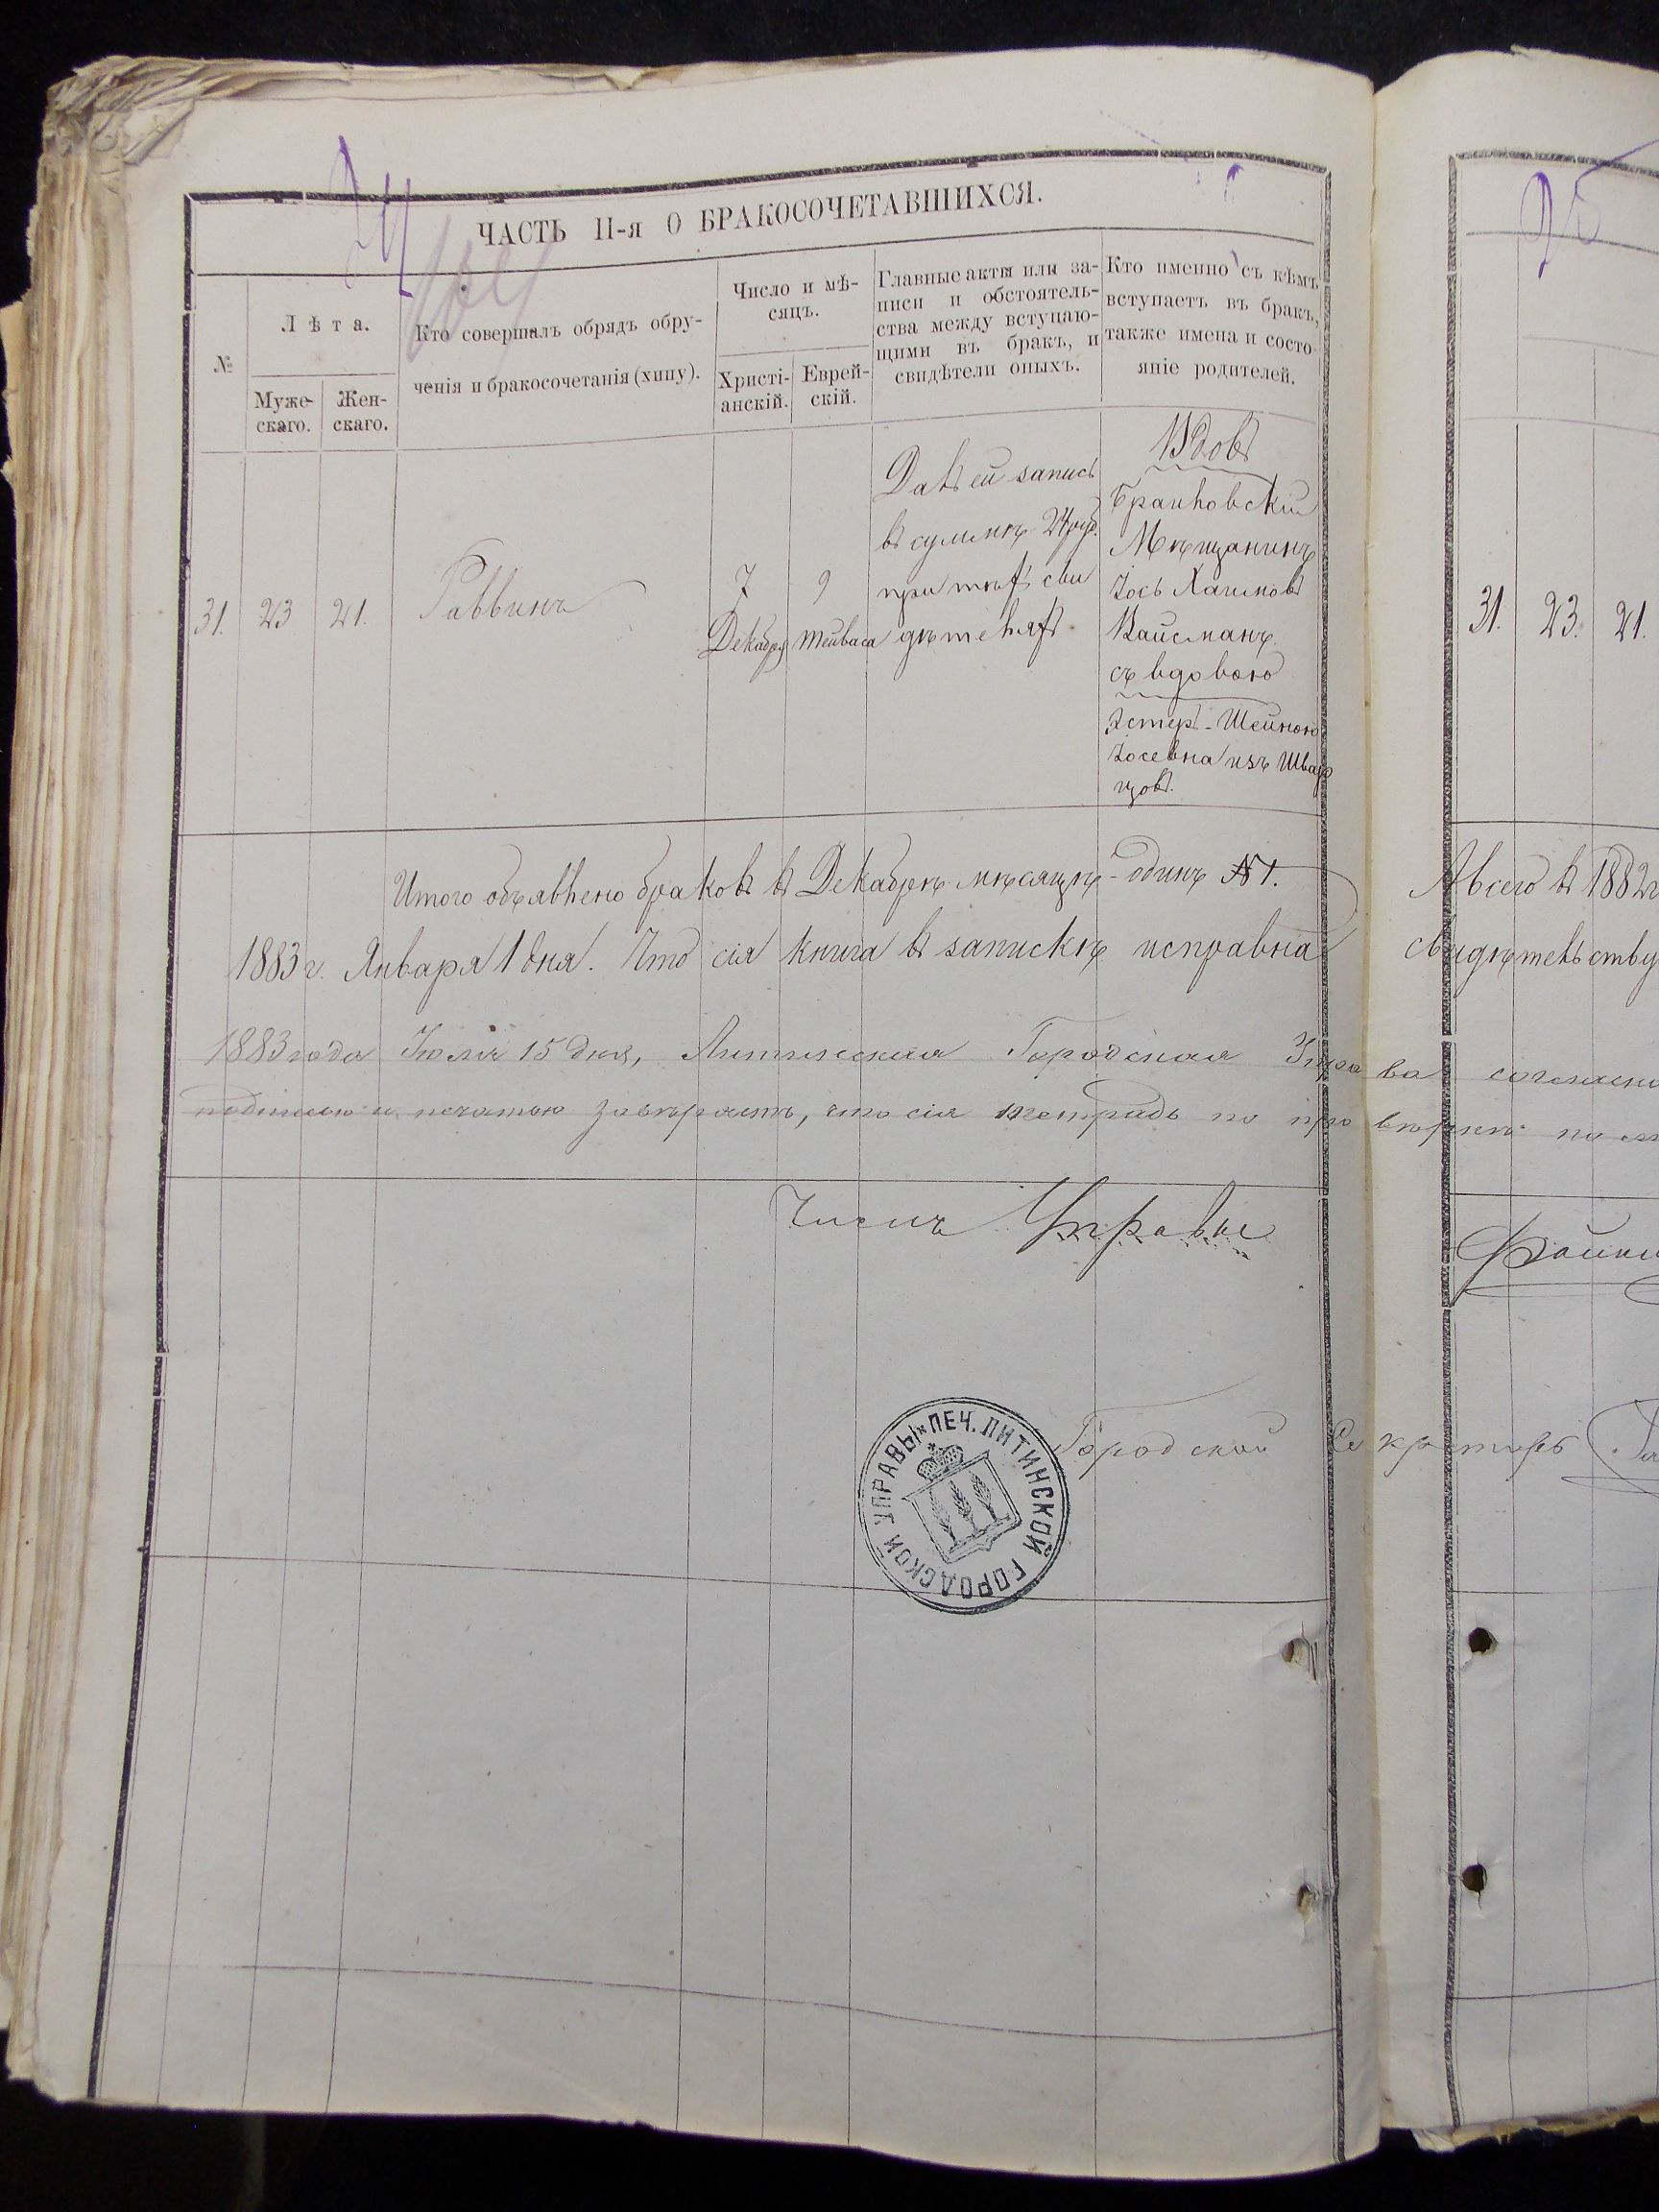 24
ЧАСТЬ II-я О БРАКОСОЧЕТАВШИХСЯ.
№
Лѣта.
Муже-
скаго.
Жен-
скаго.
Кто совершалъ обрядъ обру-
ченія и бракосочетанія (хипу).
Число и мѣ-
сяцъ.
Христі-
анскій.
Еврей-
скій.
Главные акты или за-
писи и обстоятель-
ства между вступаю-
щими въ бракъ, и
свидѣтели оныхъ.
Кто именно съ кѣмъ
вступаетъ въ бракъ,
также имена и состо-
яніе родителей.
31.
23
21.
Раввинъ
7
Декабря
9
Тейваса
Далъ ей запись
въ суммѣ 24 руб.
при тѣхъ сви
дѣтеляхъ.
Вдовъ
Браиловскій
Мѣщанинъ
Іось Хаимовъ
Вайсманъ
съ вдовою
Эстеръ-Шейною
Іосевна изъ Швар
цовъ.
31. 23. 21.
Итого объявлено браковъ въ Декабрѣ мѣсяцѣ-одинъ №1. Авсего въ 1882г
1883 г. Января 1 дня. Что сія книга въ запискѣ исправна свидѣтельству
1883 года Іюля 15 дня, Литинская Городская Управа согласно
подписью и печатью завѣряетъ, что сія тетрадь по провѣркѣ
Членъ Управы
Городской Секретарь
ПЕЧ. ЛИТИНСКОЙ ГОРОДСКОЙ УПРАВЫ